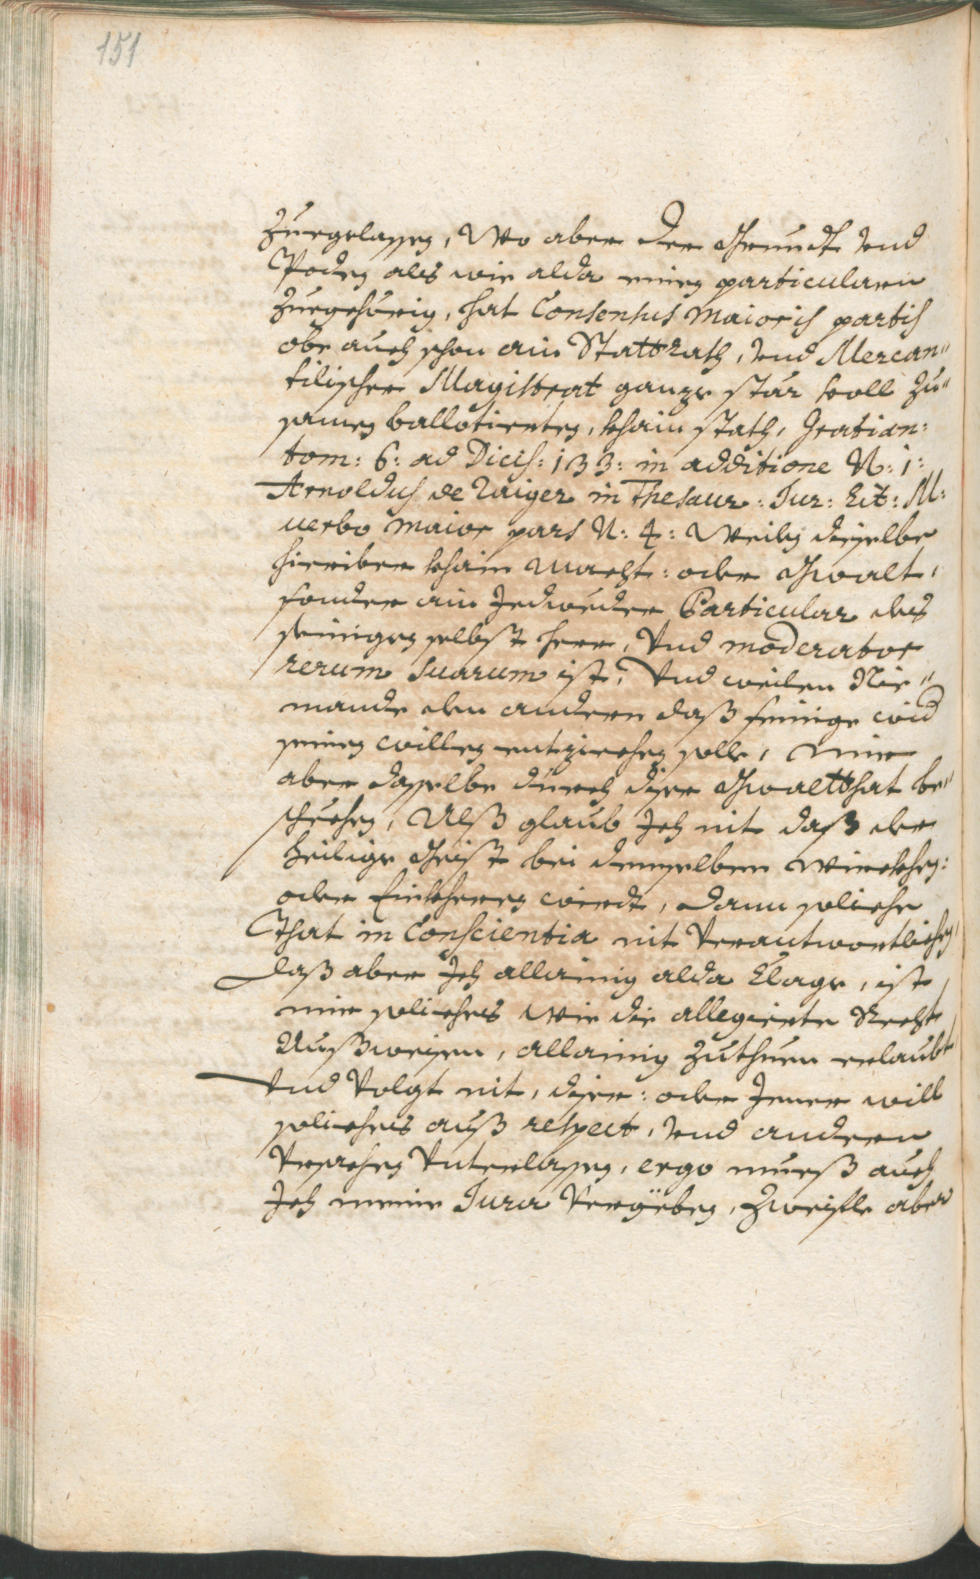 151
Zuegelassen, Wo aber der Grundt und
Poden als wie alda einen particularn
Zuegehörig, hat Consensus Maioris partis
obe auch schon ain Stattrath, und Mercan"
tilischer Magistrat ganze star voll Zu"
samen ballotierten, khain stath, Gratian:
tom: 6: ad Decis: 133: in additione N: 1:
Arnoldus de Raiger in Thesaur: Jur: Lit: M:
uerbo maior pars N: 4: Weilen dieselbe
hierüber khain Macht: oder Gwalt,
sonder ain Jedweder Particular des
seinigen selbst herr, Und moderator
rerum suarum ist, Und weilen Nie"
mandt dem andern daß seinige wid
seinen willen entziechen solle, Mir
aber dasselbe durch dise Gwaltthat be"
schechen, Alß glaub Jch nit daß der
heilige Geist bei demselben Würckhen:
oder Einkheren wirdt, dann soliche
That in Conscientia nit Verantwortlichen,
Daß aber Jch allainig alda Clage, ist
mir soliches wie die allegierte Recht
Außweisen, allainig Zuthuen erlaubt
Und Volgt nit, diser: oder Jener will
soliches auß respect, und andern
Ursachen Unterlassen, ergo mueß auch
Jch meine Jura Vergeben, Zweifle aber